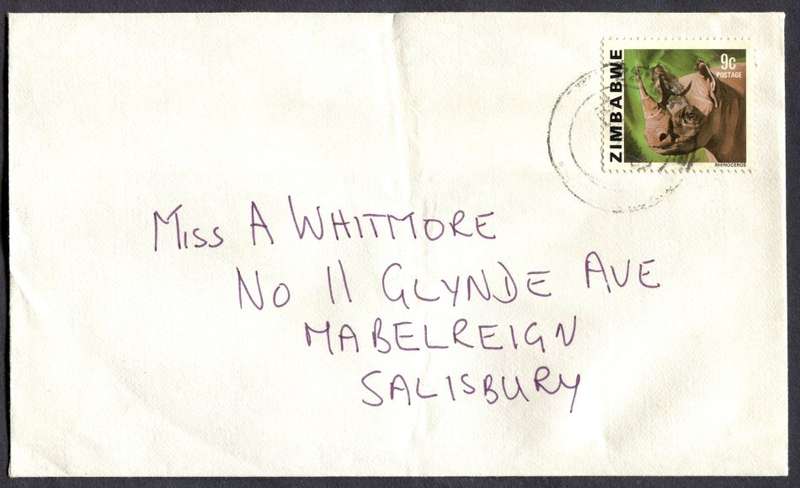 ZIMBABWE
9c
POSTAGE
RHINOCEROS
Miss A WHITMORE
No 11 GLYNDE AVE
MABELREIGN
SALISBURY